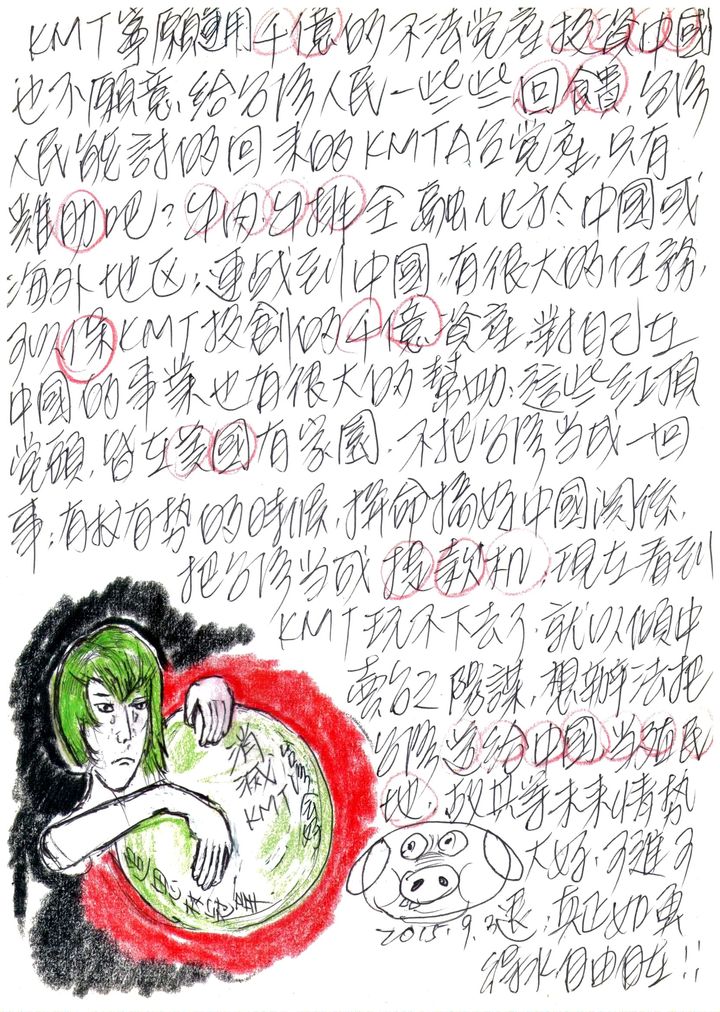 KMT寧願運用千億的不法党產投資中國
也不願意給台湾人民一些些回饋,台湾
人民能討的回来的KMTA台党產,只有
雞肋吧?牛肉牛排全融化於中國或
海外地区;連战到中國,有很大的任務,
可以保KMT投創的千億資產,對自己在
中國的事業也有很大的幫助;這些紅頂
党頭,皆在美國有家園.不把台湾当成一回
事;有权有势的時候,拼命搞好中國関係,
把台湾当成提款机;現在看到
KMT玩不下去了,就以傾中
賣台之陽謀,想辦法把
台湾送给中國当殖民
地,
未来情势
大好,可進可
退;真正如
得水自由自在!!
消滅
KMT
2015.9.3